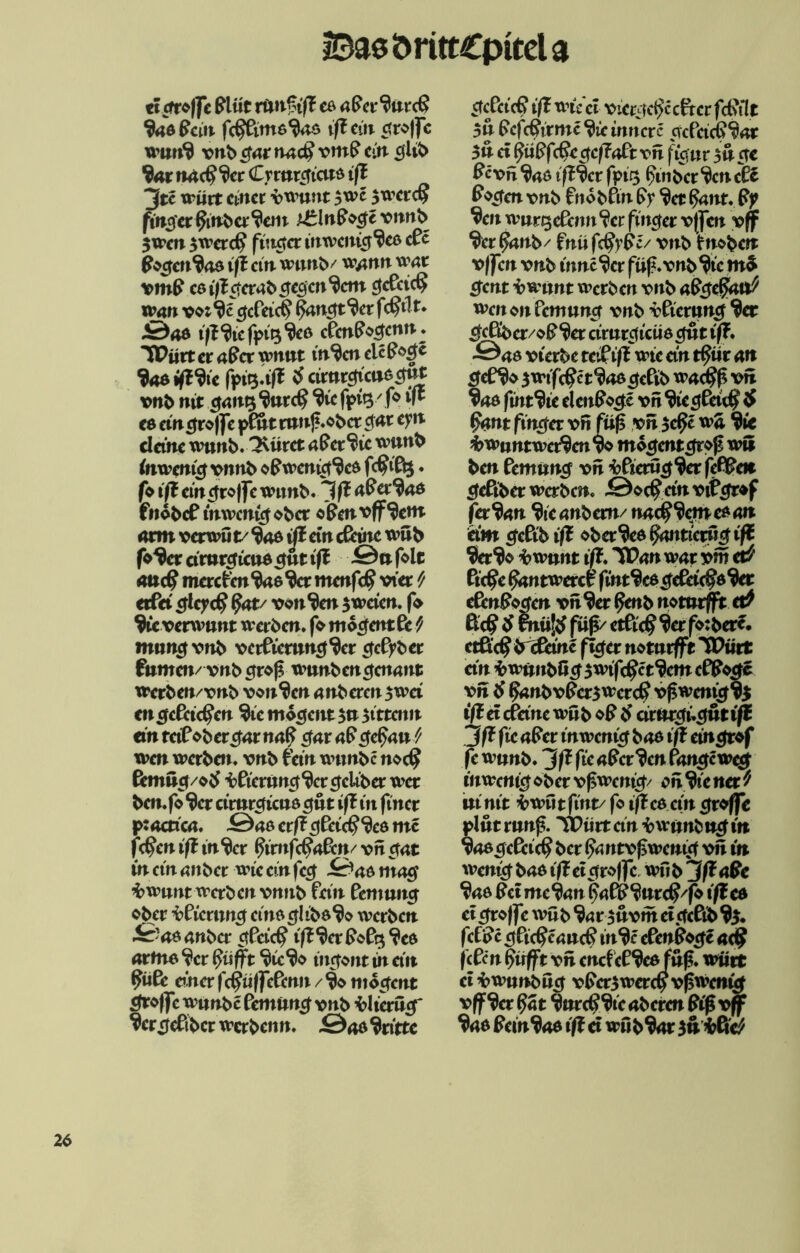 Das dritt Cpitel a
ei grosse blüt runß ist es aber durch
das bein schlims das ist ein grosse
wund vnd gar nach vmb ein glid
dar nach der Cyrurgicus ist
Jtē würt einer vwunt zwē zwerch
finger hinder dem Elnbogē vnnd
zwen zwerch finger inwenig des elē
bogen das ist ein wund/ wann war
vmb es ist gerad gegen dem geleich
wan vor dē geleich hangt der schilt.
Das ist die spitz des elenbogenn.
Würt er aber wunt in den elēbogē
das ist die spitz.ist d̓ cirurgicus gut
vnd nit gantz durch die spitz/ so ist
es ein grosse plüt runß.oder gar eyn
cleine wund. Rüret aber die wund
inwenig vnnd obwenig des schilds.
so ist ein grosse wund. Jst aber das
knöbel inwenig oder oben vff dem
arm verwūt/ das ist ein cleine wūd
so der cirurgicus gut ist Da solt
auch mercken das der mensch vier /
erlei gleych hat/ von den zweien. so
die verwunt werden. so mögent le /
mung vnd verlierung der gelyder
kumen/ vnd groß wunden genant
werden/ vnd von den anderen zwei
en geleichen die mögent zu zittenn
ein teil ober gar naß gar ab gehau /
wen werden. vnd kein wundē noch
lemūg/od̓ vlierung der gelider wer
den.so der cirurgicus gut ist in siner
practica. Das erst gleich des mē
schen ist in der hirnschalen/ vn̄ gat
in ein ander wie ein seg Das mag
vwunt werden vnnd kein lemung
oder vlierung eins glids do werden
Das ander gleich ist der boltz des
arms der hüfft die do ingont in ein
hüle einer schüsselenn/ do mögent
grosse wundē lemung vnd vlierūg
der gelider werdenn. Das dritte
geleich ist wie ei viergehececkter schilt
zū beschirmē die innere geleich dar
zū ei hübsche gestalt vn̄ figur zū ge
bē vn̄ das ist der spitz hinder den elē
bogen vnd knöblin by der hant. by
den wurtzelenn der finger vssen vff
der hand/ knü schybē/ vnd knoden
vssen vnd innē der füß.vnd die mö
gent vwunt werden vnd abgehau /
wen on lemung vnd vlierung der
gelider/ob der cirurgicus gut ist.
Das vierde teil ist wie ein thür an
gel do zwischēt das gelid wachß vn̄
das sint die elenbogē vn̄ die gleich d̓
hant finger vn̄ füß vn̄ zehē wa die
vwunt werden do mögent groß wū
den lemung vn̄ vlierūg der selben
gelider werden. Doch ein vil grof
ser dan die andern/ nach dem es an
eim gelid ist oder des hantierūg ist
der do vwunt ist. Wan war vm̄ et /
liche hantwerck sint des geleichs der
elenbogen vn̄ der hend noturfft et /
lich d̓ knüw d̓ füß/ etlich der forderē.
etlich d̓ cleinē figer noturfft Würt
ein vwundūg zwischēt dem elbogē
vn̄ d̓ hand vber zwerch vßwenig dz
ist ei cleine wūd ob d̓ cirurgi.gut ist
Jst sie aber inwenig das ist ein grof
se wund. Jst sie aber den lange weg
inwenig ober vßwenig/ on die ner /
ui nit vwūt sint/ so ist es ein grosse
plüt runß. Würt ein vwundug in
das geleich der hant vßwenig vn̄ in
wenig das ist ei grosse wūd Jst abe
das bei mē dan halb durch/so ist es
ei grosse wūd dar zūvm̄ ei gelid dz.
selbē glichē auch in dē elenbogē ach
selen hüfft vn̄ enckel des füß. würt
ei vwundūg vber zwerch vßwenig
vff der hāt durch die aderen biß vff
das bein das ist ei wūd dar zū vlie /
26